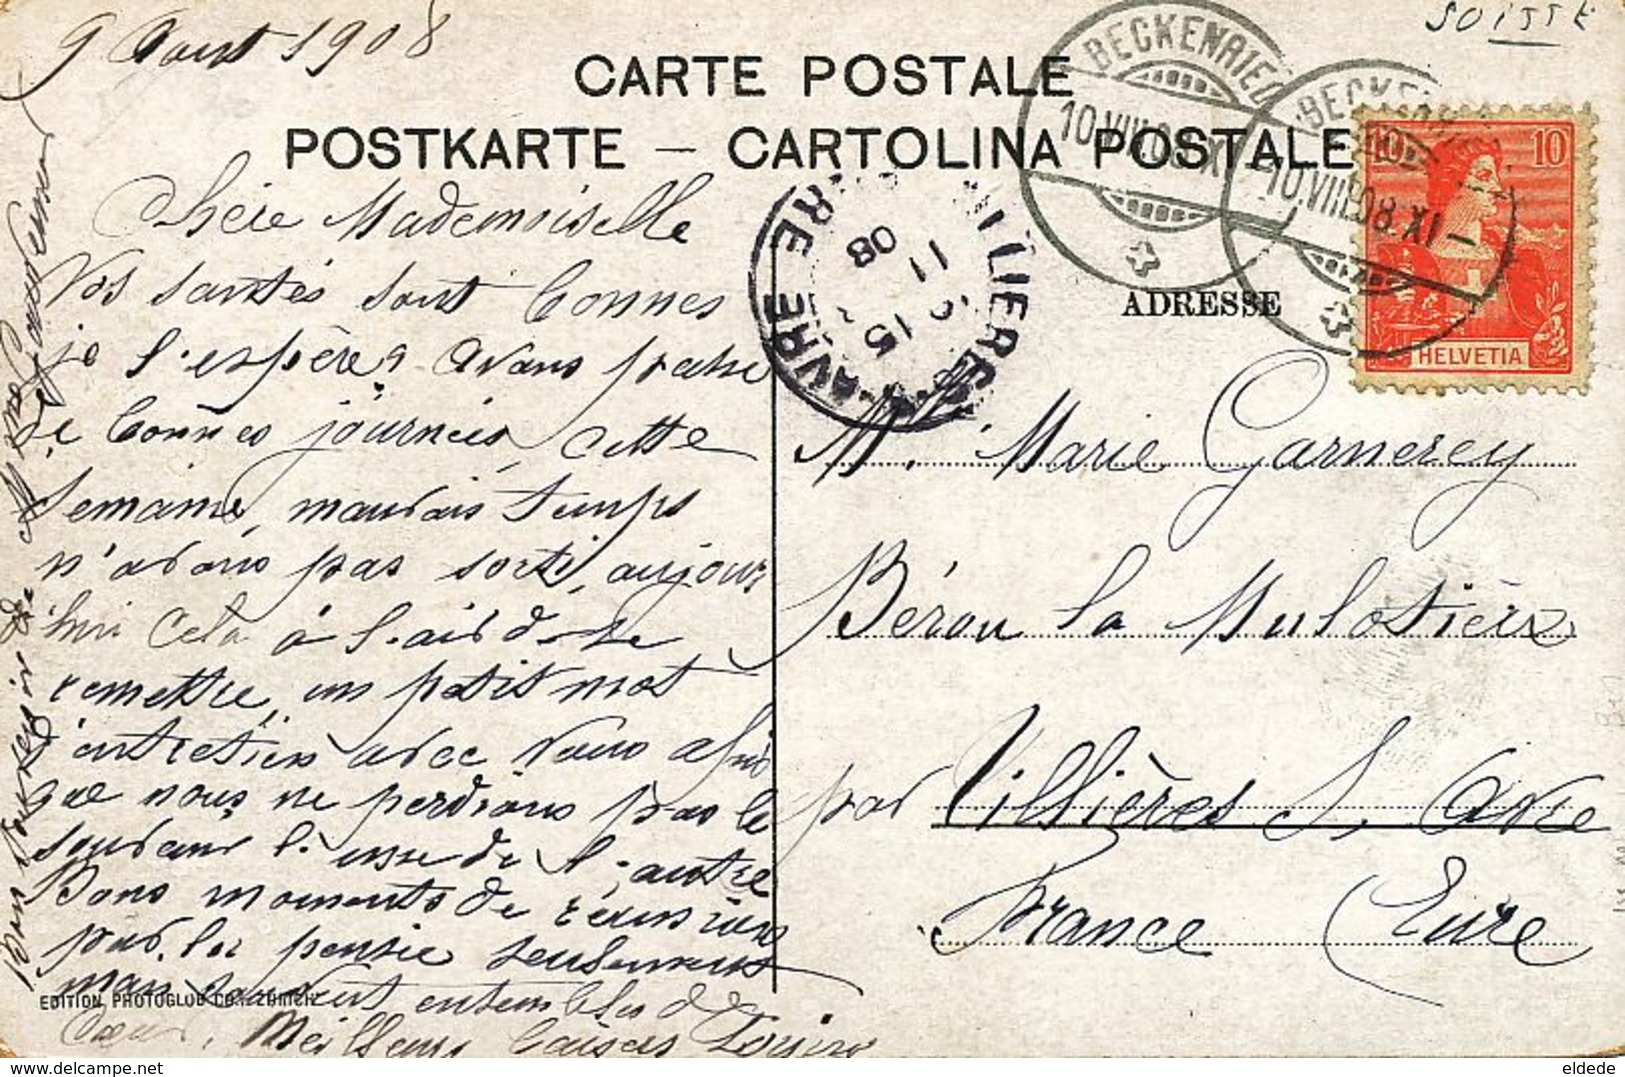 9 Aout 1908
SUISSE
CARTE POSTALE
POSTKARTE — CARTOLINA POSTALE
BECKENRIED
10.VIII.08.XI
BECKENRIED
10.VIII.08.XI—
10 10
HELVETIA
ADRESSE
15
11
08
HAVRE
Chère Mademoiselle
Vos santés sont bonnes
je l'espère. Avons passé
de bonnes journées, cette
semaine, mauvais temps
n'avons pas sorti, aujour
hui cela à l'air de se
remettre, un petit mot
d'entretien avec vous afin
que nous ne perdions pas le
souvenir l'une de l'autre
Bons moments de
par la pensée seulement
mais souvent ensembles de
Cœur, Meilleurs baisers
Bon souvenir de Mme
M. Marie Garnerey
Bérou la Mulotière
par Tillières S. Avre
France (Eure
EDITION PHOTOGLOB CO., ZÜRICH
eldede